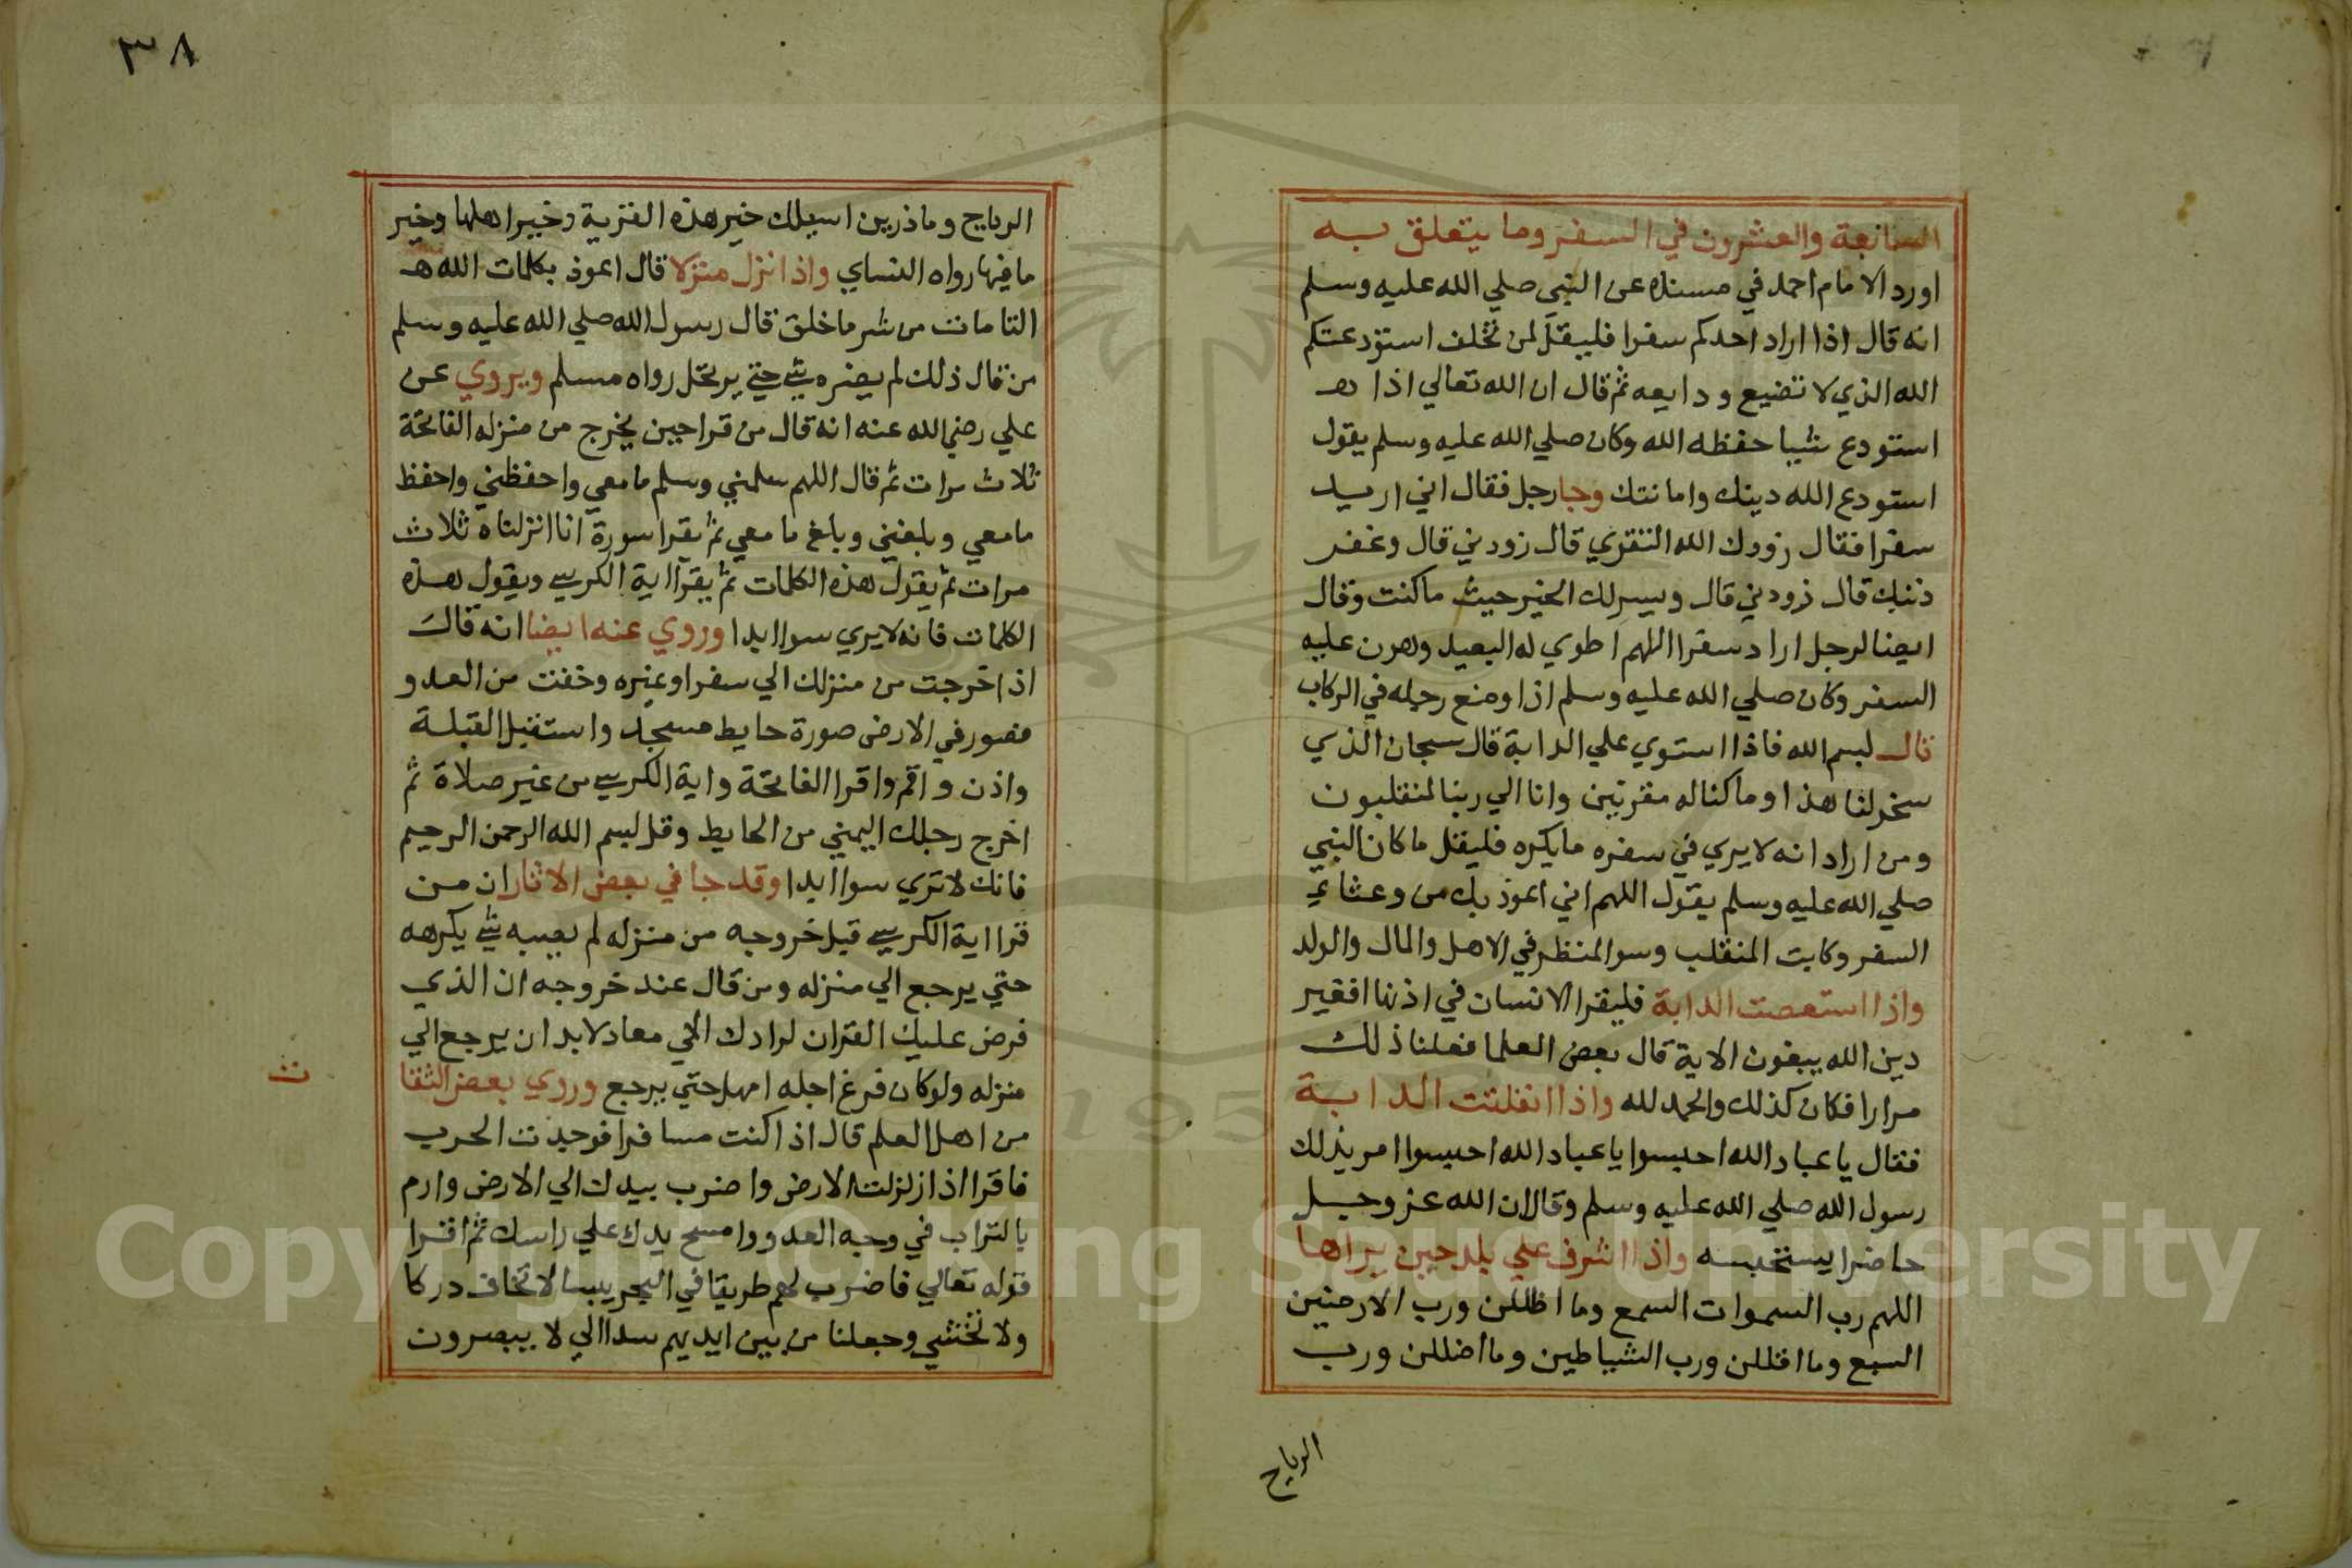 السابعة والعشرون في السفر وما يتعلق به
اورد الامام احمد في مسنده عن النبي صلي الله عليه وسلم
انه قال اذا اراد احدكم سفرا فليقل لمن تخلف استودعتكم
الله الذي لا تضيع ودايعه ثم قال ان الله تعالي اذا هـ
استودع شيا حفظه الله وكان صلي الله عليه وسلم يقول
استودع الله دينك وامانتك وجا رجل فقال اني اريد
سفرا فقال زودك الله التقوي قال زودني قال وغفر
ذنبك قال زودني قال ويسر لك الخير حيث ما كنت وقال
ايضا لرجل اراد سفرا اللهم اطوي له البعيد وهون عليه
السفر وكان صلي الله عليه وسلم اذا وضع رجله في الركاب
قال بسم الله فاذا استوي علي الدابة قال سبحان الذي
سخر لنا هذا وما كنا له مقرنين وانا الي ربنا لمنقلبون
ومن اراد انه لا يري في سفره ما يكره فليقل ما كان النبي
صلي الله عليه وسلم يقول اللهم اني اعوذ بك من وعثاء
السفر وكابت المنقلب وسوا المنظر في الاهل والمال والولد
واذا استعصت الدابة فليقرا الانسان في اذنها افغير
دين الله يبغون الاية قال بعض العلما فعلنا ذلك
مرارا فكان كذلك والحمد لله واذا انفلتت الدابة
فقال يا عباد الله احبسوا يا عباد الله احبسوا امر بذلك
رسول الله صلي الله عليه وسلم وقال ان الله عز وجل
حاضرا يستحبسه واذا اشرف علي بلد حين يراها
اللهم رب السموات السمع وما اظللن ورب الارضين
السبع وما اقللن ورب الشياطين وما اضللن ورب
الرياح
٣٨
الرياح وما ذرين اسيلك خير هذه القرية وخير اهلها وخير
ما فيها رواه النساي واذا نزل منزلا قال اعوذ بكلمات الله هـ
التامات من شر ما خلق قال رسول الله صلي الله عليه وسلم
من قال ذلك لم يضره شي حتي يرتحل رواه مسلم ويروي عن
علي رضي الله عنه انه قال من قرا حين يخرج من منزله الفاتحة
ثلاث مرات ثم قال اللهم سلمني وسلم ما معي واحفظني واحفظ
ما معي وبلغني وبلغ ما معي ثم يقرا سورة انا انزلناه ثلاث
مرات ثم يقول هذه الكلمات ثم يقرا اية الكرسي ويقول هذه
الكلمات فانه لا يري سوا ابدا وروي عنه ايضا انه قال
اذا خرجت من منزلك الي سفر او غيره وخفت من العدو
فصور في الارض صورة حايط مسجد واستقبل القبلة
واذن واقم واقرا الفاتحة واية الكرسي من غير صلاة ثم
اخرج رجلك اليمني من الحايط وقل بسم الله الرحمن الرحيم
فانك لا تري سوا ابدا وقد جا في بعض الاثار ان من
قرا اية الكرسي قبل خروجه من منزله لم يصبه شي يكرهه
حتي يرجع الي منزله ومن قال عند خروجه ان الذي
فرض عليك القران لرادك الي معاد لابد ان يرجع الي
منزله ولو كان فرغ اجله امهل حتي يرجع وروي بعض الثقا
ت
من اهل العلم قال اذا كنت مسافرا فوجدت الحرب
فاقرا اذا زلزلت الارض واضرب بيدك الي الارض وارم
بالتراب في وجه العدو وامسح يدك علي راسك ثم اقرا
قوله تعالي فاضرب لهم طريقا في البحر يبسا لا تخاف دركا
ولا تخشي وجعلنا من بين ايديهم سدا الي لا يبصرون
Copyright © King Saud University
195